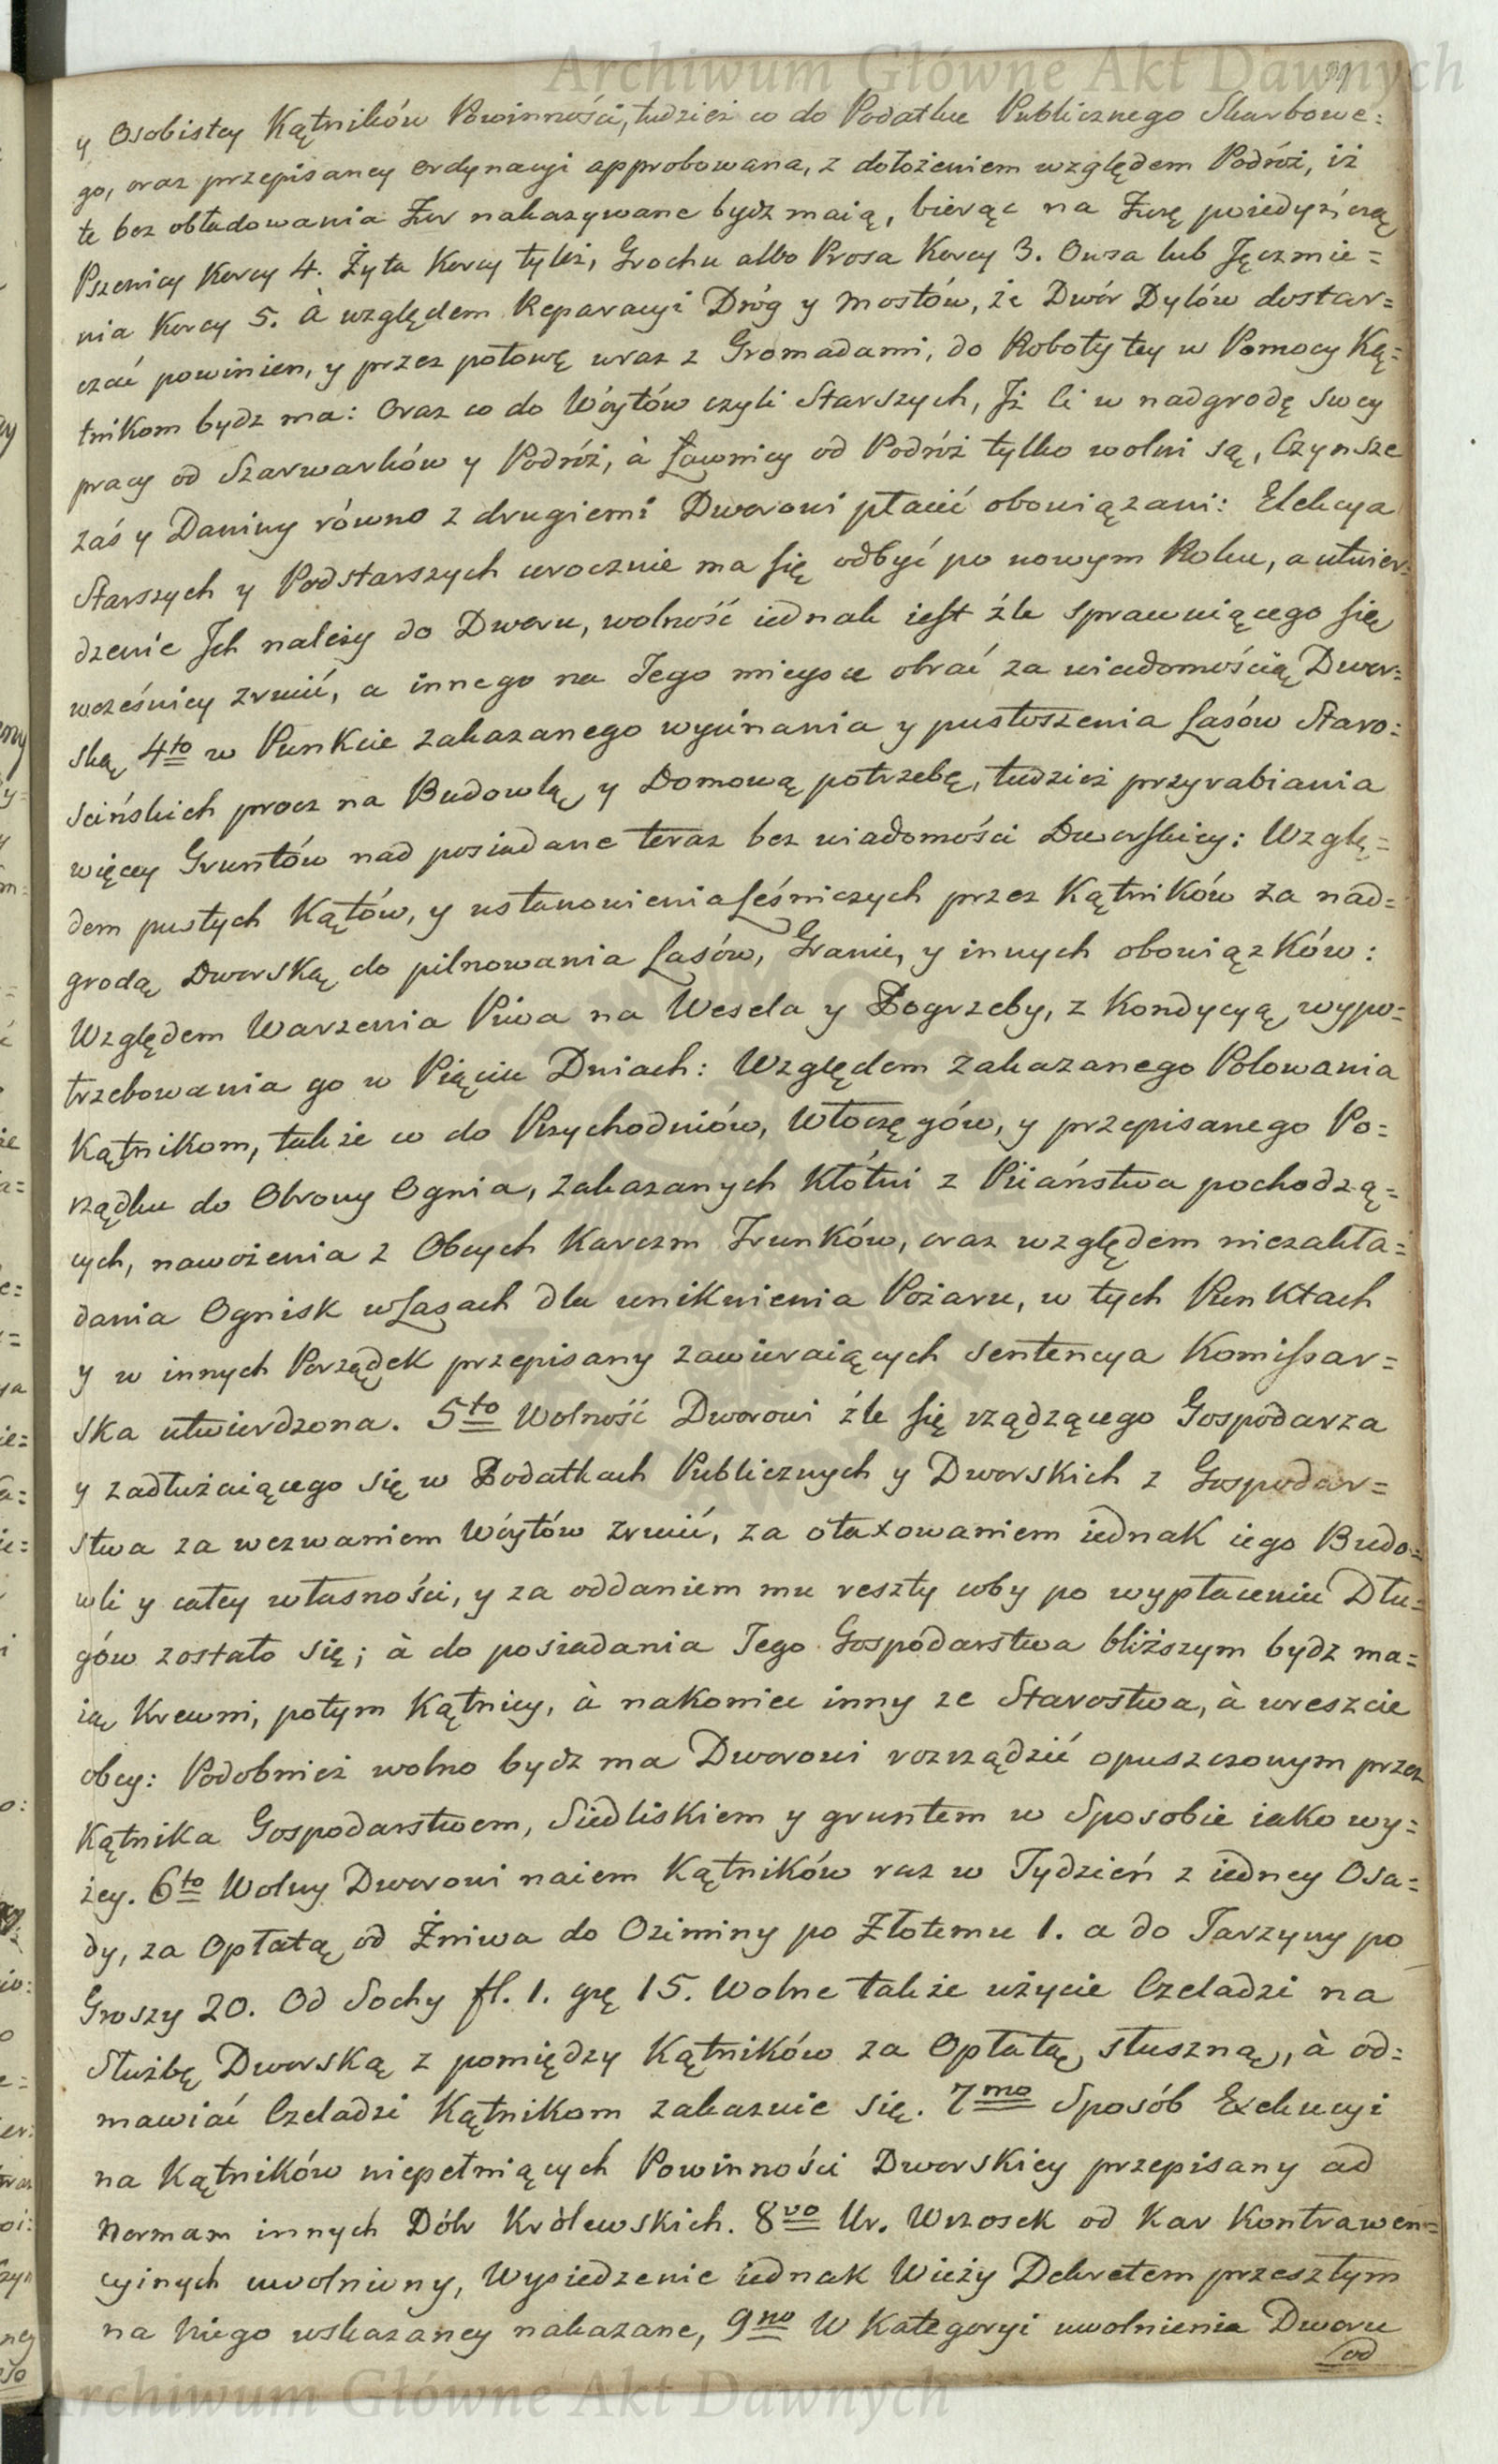 Archiwum Główne Akt Dawnych
y Osobistey Kątników Powinności, tudzież co do Podatku Publicznego Skarbowe:
go, oraz przepisaney ordynacyi approbowana, z dołożeniem względem Podróż, iż
te bez obładowania Fur nakazywane bydź maią, biorąc na Furę poiedyńczą
Pszenicy Korcy 4. Żyta Korcy tyleż, Grochu albo Prosa Korcy 3. Owsa lub Jęczmie=
nia Korcy 5. à względem Reparacyi Dróg y Mostów, że Dwór Dylów dostar=
czać powinien, y przez połowę wraz z Gromadami, do Roboty tey w Pomocy Ką=
tnikom bydz ma: Oraz co do Wóytów czyli Starszych, Jż Ci w nadgrodę swey
pracy od Szarwarków y Podróż, à Ławnicy od Podróż tylko wolni są, Czynsze
zaś y Daniny równo z drugiemi Dworowi płacić obowiązani: Elekcya
Starszych y Podstarszych corocznie ma się odbyć po nowym Roku, a utwier=
dzenie Jch należy do Dworu, wolność iednak iest źle sprawuiącego się
wcześniey zrucić, a innego na Jego mieysce obrać za wiadomością Dwor=
ską, 4to w Punkcie zakazanego wycinania y pustoszenia Lasów Staro=
ścińskich procz na Budowlą, y Domową potrzebę, tudzież przyrabiania
więcey Gruntów nad posiadane teraz bez wiadomości Dworskiey: Wzglę=
dem pustych Kątów, y ustanowienia Leśniczych przez Kątników za nad=
grodą Dworską, do pilnowania Lasów, Granic, y innych obowiązków:
Względem Warzenia Piwa na Wesela y Pogrzeby, z Kondycyą wypo=
trzebowania go w Pięciu Dniach: Względem zakazanego Polowania
Kątnikom, także co do Przychodniów, Włoczęgów, y przepisanego Po=
rządku do Obrony Ognia, zakazanych Kłótni z Piiaństwa pochodzą=
cych, nawożenia z Obcych Karczm Trunków, oraz względem niezakła=
dania Ognisk w Lasach dla uniknienia Pożaru, w tych Punktach
y w innych Porządek przepisany zawieraiących Sentencya Kommissar=
ska utwierdzona. 5to Wolność Dworowi źle się rządzącego Gospodarza
y zadłużaiącego się w Podatkach Publicznych y Dworskich z Gospodar=
stwa za wezwaniem Wóytów zrucić, za otaxowaniem iednak iego Budo=
wli y całey własności, y za oddaniem mu reszty coby po wypłaceniu Dłu=
gów zostało się; à do posiadania Jego Gospodarstwa bliższym bydz ma=
ią Krewni, potym Kątnicy, à nakoniec inny ze Starostwa, à wreszcie
obcy: Podobnież wolno bydz ma Dworowi rozrządzić opuszczonym przez
Kątnika Gospodarstwem, Siedliskiem y gruntem w Sposobie iako wy=
żey. 6to Wolny Dworowi naiem Kątników raz w Tydzień z iedney Osa=
dy, za Opłatą od Żniwa do Oziminy po Złotemu 1. a do Jarzyny po
Groszy 20. Od Sochy fl. 1. gr 15. Wolne także użycie Czeladzi na
Służbę Dworską z pomiędzy Kątników za Opłatą słuszną, à od=
mawiać Czeladzi Kątnikom zakazuie się. 7mo Sposób Exekucyi
na Kątników niepełniących Powinności Dworskiey przepisany ad
Normam innych Dóbr Królewskich. 8vo Ur. Wrzosek od Kar Kontrawen=
cyinych uwolniony, Wysiedzenie iednak Wieży Dekretem przeszłym
na Niego wskazaney nakazane, 9no W Kategoryi uwolnienia Dworu
od
Archiwum Główne Akt Dawnych